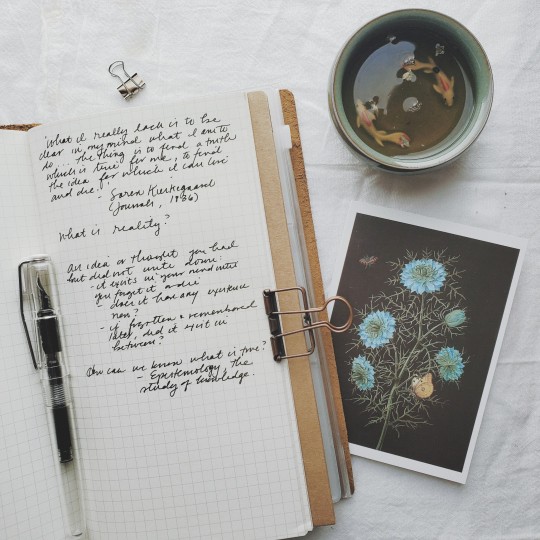 "What I really lack is to be
clear in my mind what I am to
do ... the thing is to find a truth
which is true for me, to find
the idea for which I can live
and die."
- Soren Kierkegaard
(Journals, 1836)
What is reality?
An idea or thought you had
but did not write down:
- it exists in your mind until
you forget it or die
- does it have any existence
now?
- if forgotten & remembered
later, did it exist in
between?
How can we know what is true?
- Epistemology, the
study of knowledge.